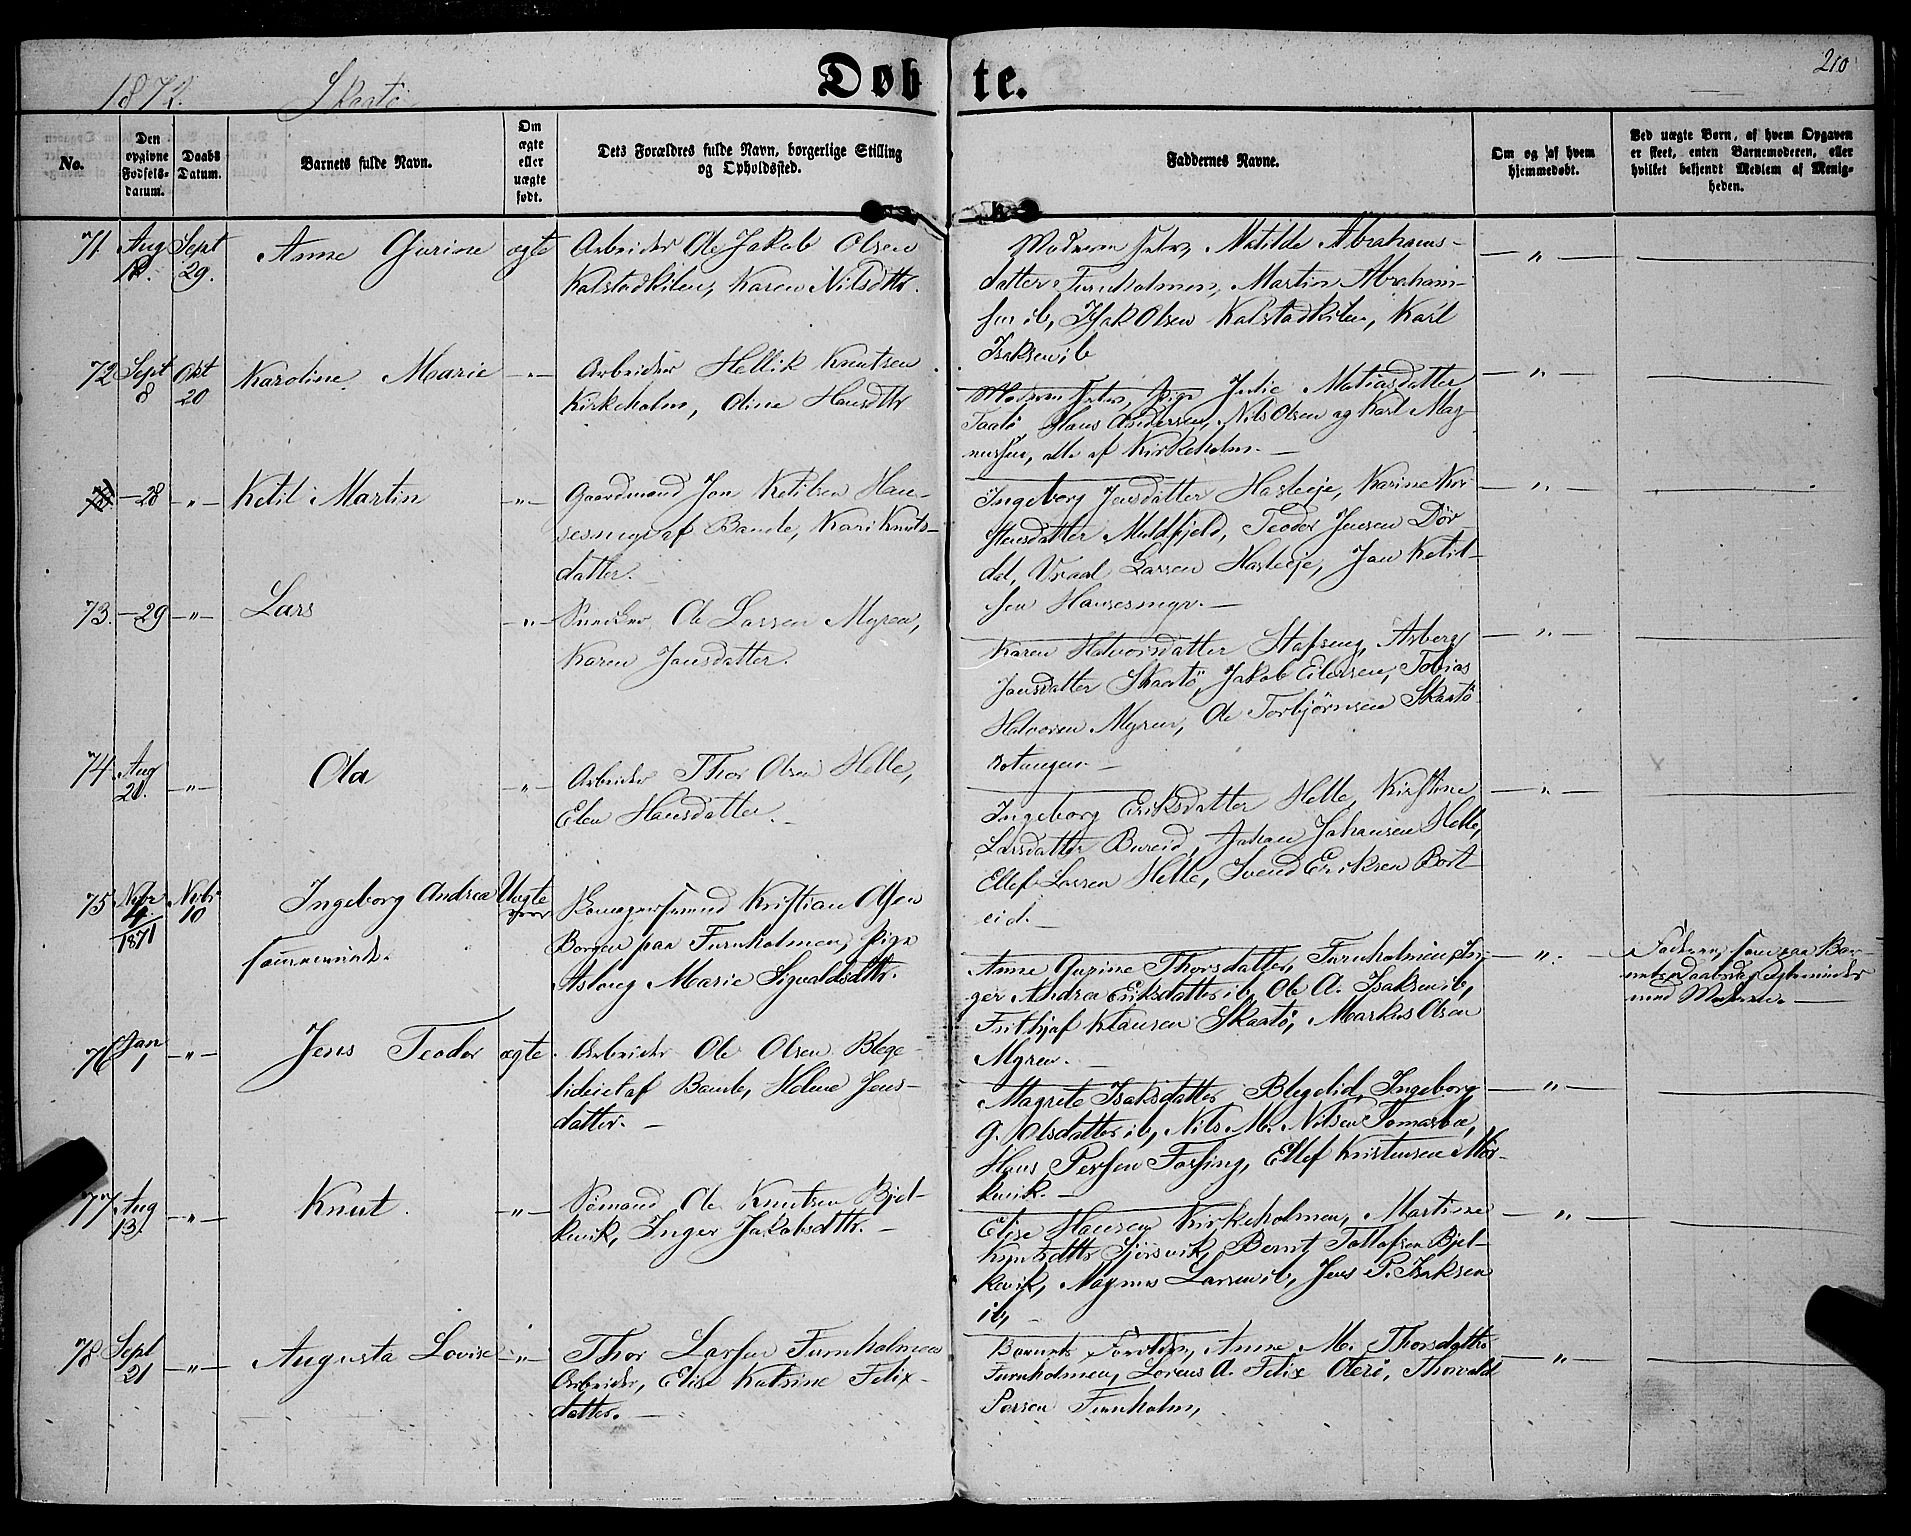 1872. Skaatö
Døbte.
210
No.
Den opgivne Fødsels-datum.
Daabs Datum.
Barnets fulde Navn.
Om ægte eller uægte født.
Dets Forældres fulde Navn, borgerlige Stilling og Opholdssted.
Faddernes Navne.
Om og af hvem hjemmedøbt.
Ved uægte Børn, af hvem Opgaven er skeet, enten Barnemoderen, eller hvilket bekjendt Medlem af Menigheden.
71 Aug Sept Anne Gurine ægte Arbeider Ole Jakob Olsen
29. Kalstadkilen, Karen Nilsdttr.
Moderen selv, Matilde Abrahams-
datter Furuholmen, Martin Abraham-
sen ib, Isak Olsen Kalstadkilen, Karl
Isaksen ib
72 Sept 8 Okt 20 Karoline Marie -"- Arbeider Hellik Knutsen
Kirkeholm, Aline Hansdttr
Moderen selv, Pige Julie Matiasdatter
Taatö Hans Andersen, Nils Olsen og Karl Mag-
nussen, alle af Kirkeholm.
-28 -"- Ketil Martin -"- Gaardmand Jon Ketilsen Han-
sesmyr af Bamle, Kari Knuts-
datter.
Ingeborg Jensdatter Hasleeje, Karine Kri-
stensdatter Muldfjeld, Teodor Jensen Dör-
dal, Vraal Larsen Hasleeje, Jon Ketil-
sen Hansesmyr.
73. -29 -"- Lars -"- Snedker Ole Larsen Myren,
Karen Jensdatter.
Karen Halvorsdatter Stafseng, Asberg
Jensdatter Skaatö, Jakob Eilersen, Tobias
Halvorsen Myren, Ole Torbjörnsen Skaatö
74. Aug 21. -"- Ola -"- Arbeider Thor Olsen Helle,
Elen Hansdatter.
Ingeborg Eriksdatter Helle, Kirstine
Larsdatter Bureid, Johan Johansen Helle,
Ellef Larsen Helle, Svend Eriksen Bort-
eid.
75 Nvbr 4 1871 Nvbr 10 Ingeborg Andrea Uægte Kristian Olsen
Borgen paa Furuholmen, Pige
Aslaug Marie Sigvaldsdttr.
Anne Gurine Thorsdatter, Furuholmen, In-
ger Andrea Eriksdatter ib, Ole A. Isaksen ib,
Frithjof Klausen Skaatö, Markus Olsen
Myren.
Faderen, som paa Bar-
med Moderen.
76 Jan 1 -"- Jens Teodor ægte. Arbeider Ole Olsen Blege-
lideiet af Bamle, Helene Jens-
datter.
Magrete Isaksdatter Blegelid, Ingeborg
G. Olsdatter ib, Nils M. Nilsen Tomasbæ,
Hans Persen Fossing, Ellef Kristensen Mör-
kvik.
77 Aug 13. -"- Knut -"- Sömand Ole Knutsen Bjel-
kevik, Inger Jakobsdttr.
Elise Hansen Kirkeholmen, Martine
Knutsdttr Sjörsvik, Bernt Tollofsen Bjel-
kevik, Magnus Larsen ib, Jens P. Isaksen
ib,
78 Sept 21 -"- Augusta Lovise -"- Thor Larsen Furuholmen
Arbeider, Elise Katrine Felix-
datter.
Barnets Forældre, Anne M. Thorsdatter
Furuholmen, Lorens A. Felix Öterö, Thorvald
Persen Furuholm,